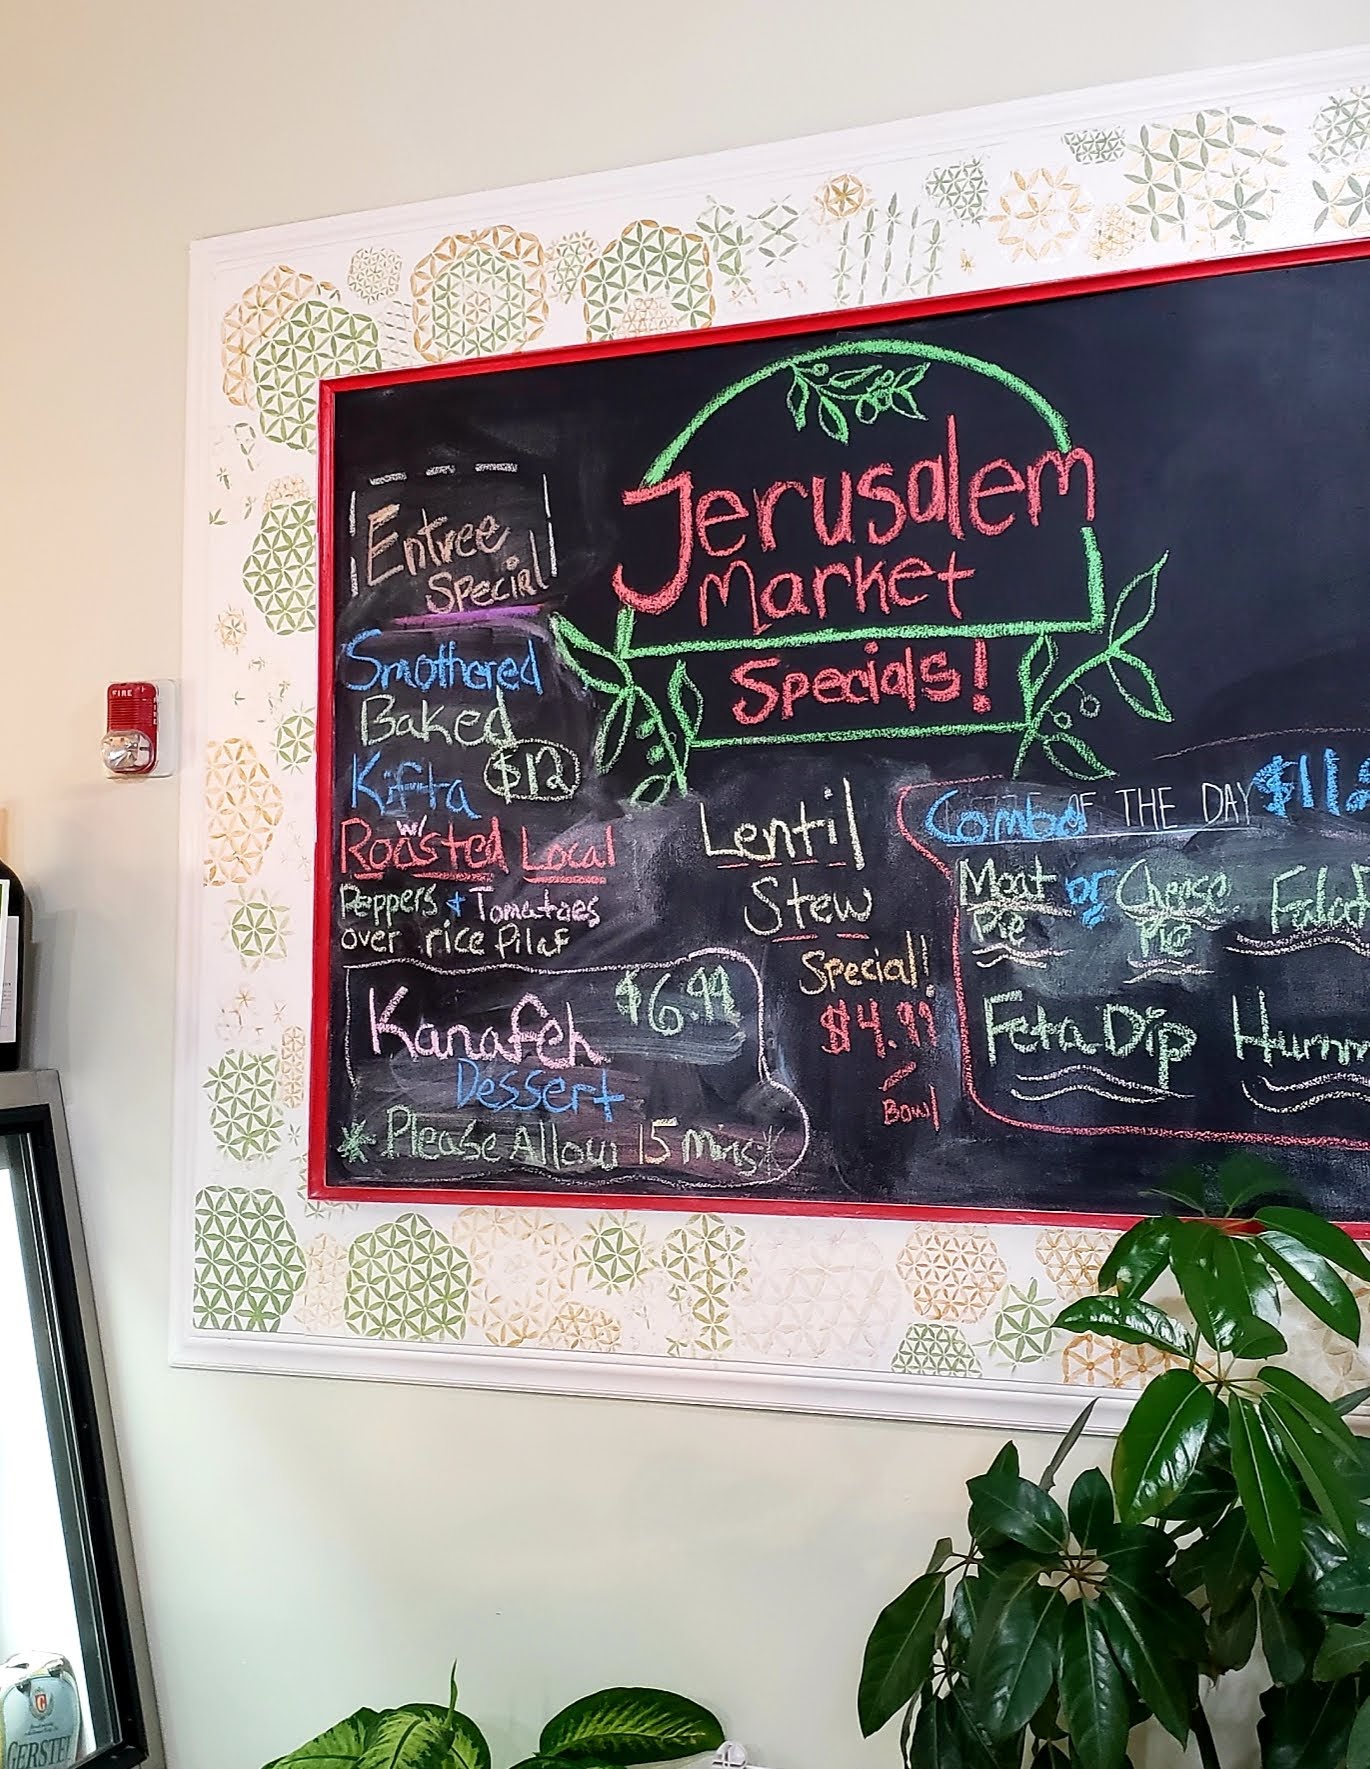 Jerusalem
Market
Specials!
Entree
Special
Smothered
Baked
Kifta $12
w/
Roasted Local
Peppers & Tomatoes
over rice Pilaf
Kanafeh $6.99
Dessert
*Please Allow 15 mins*
Lentil
Stew
Special!
$4.99
Bowl
Combo OF THE DAY
Meat or Cheese
Pie Pie
Feta Dip
FIRE